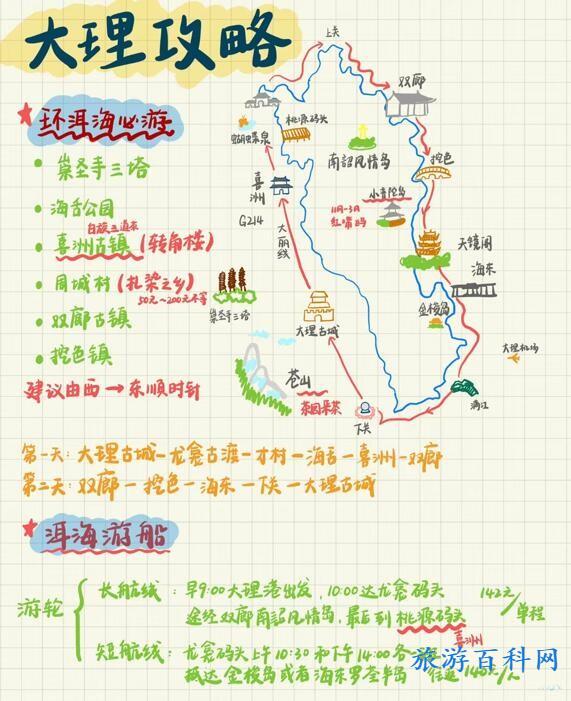 大理攻略
环洱海必游
崇圣寺三塔
海舌公园
白族三道茶
喜洲古镇(转角楼)
周城村(扎染之乡)
50元~200元不等
双廊古镇
挖色镇
建议由西→东顺时针
上关
双廊
桃源码头
蝴蝶泉
南诏风情岛
挖色
喜洲
小普陀岛
11月-3月
红嘴鸥
G214
大丽线
天镜阁
海东
崇圣寺三塔
大理古城
金梭岛
大理机场
苍山
茶园采茶
下关
满江
第一天:大理古城-龙龛古渡-才村-海舌-喜洲-双廊
第二天:双廊-挖色-海东-下关-大理古城
洱海游船
游轮
长航线:早9:00大理港出发,10:00达龙龛码头
途经双廊南诏风情岛,最后到桃源码头
142元/单程
喜洲
短航线:龙龛码头上午10:30和下午14:00各一
抵达金梭岛或者海东罗荃半岛 往返140元/人
旅游百科网